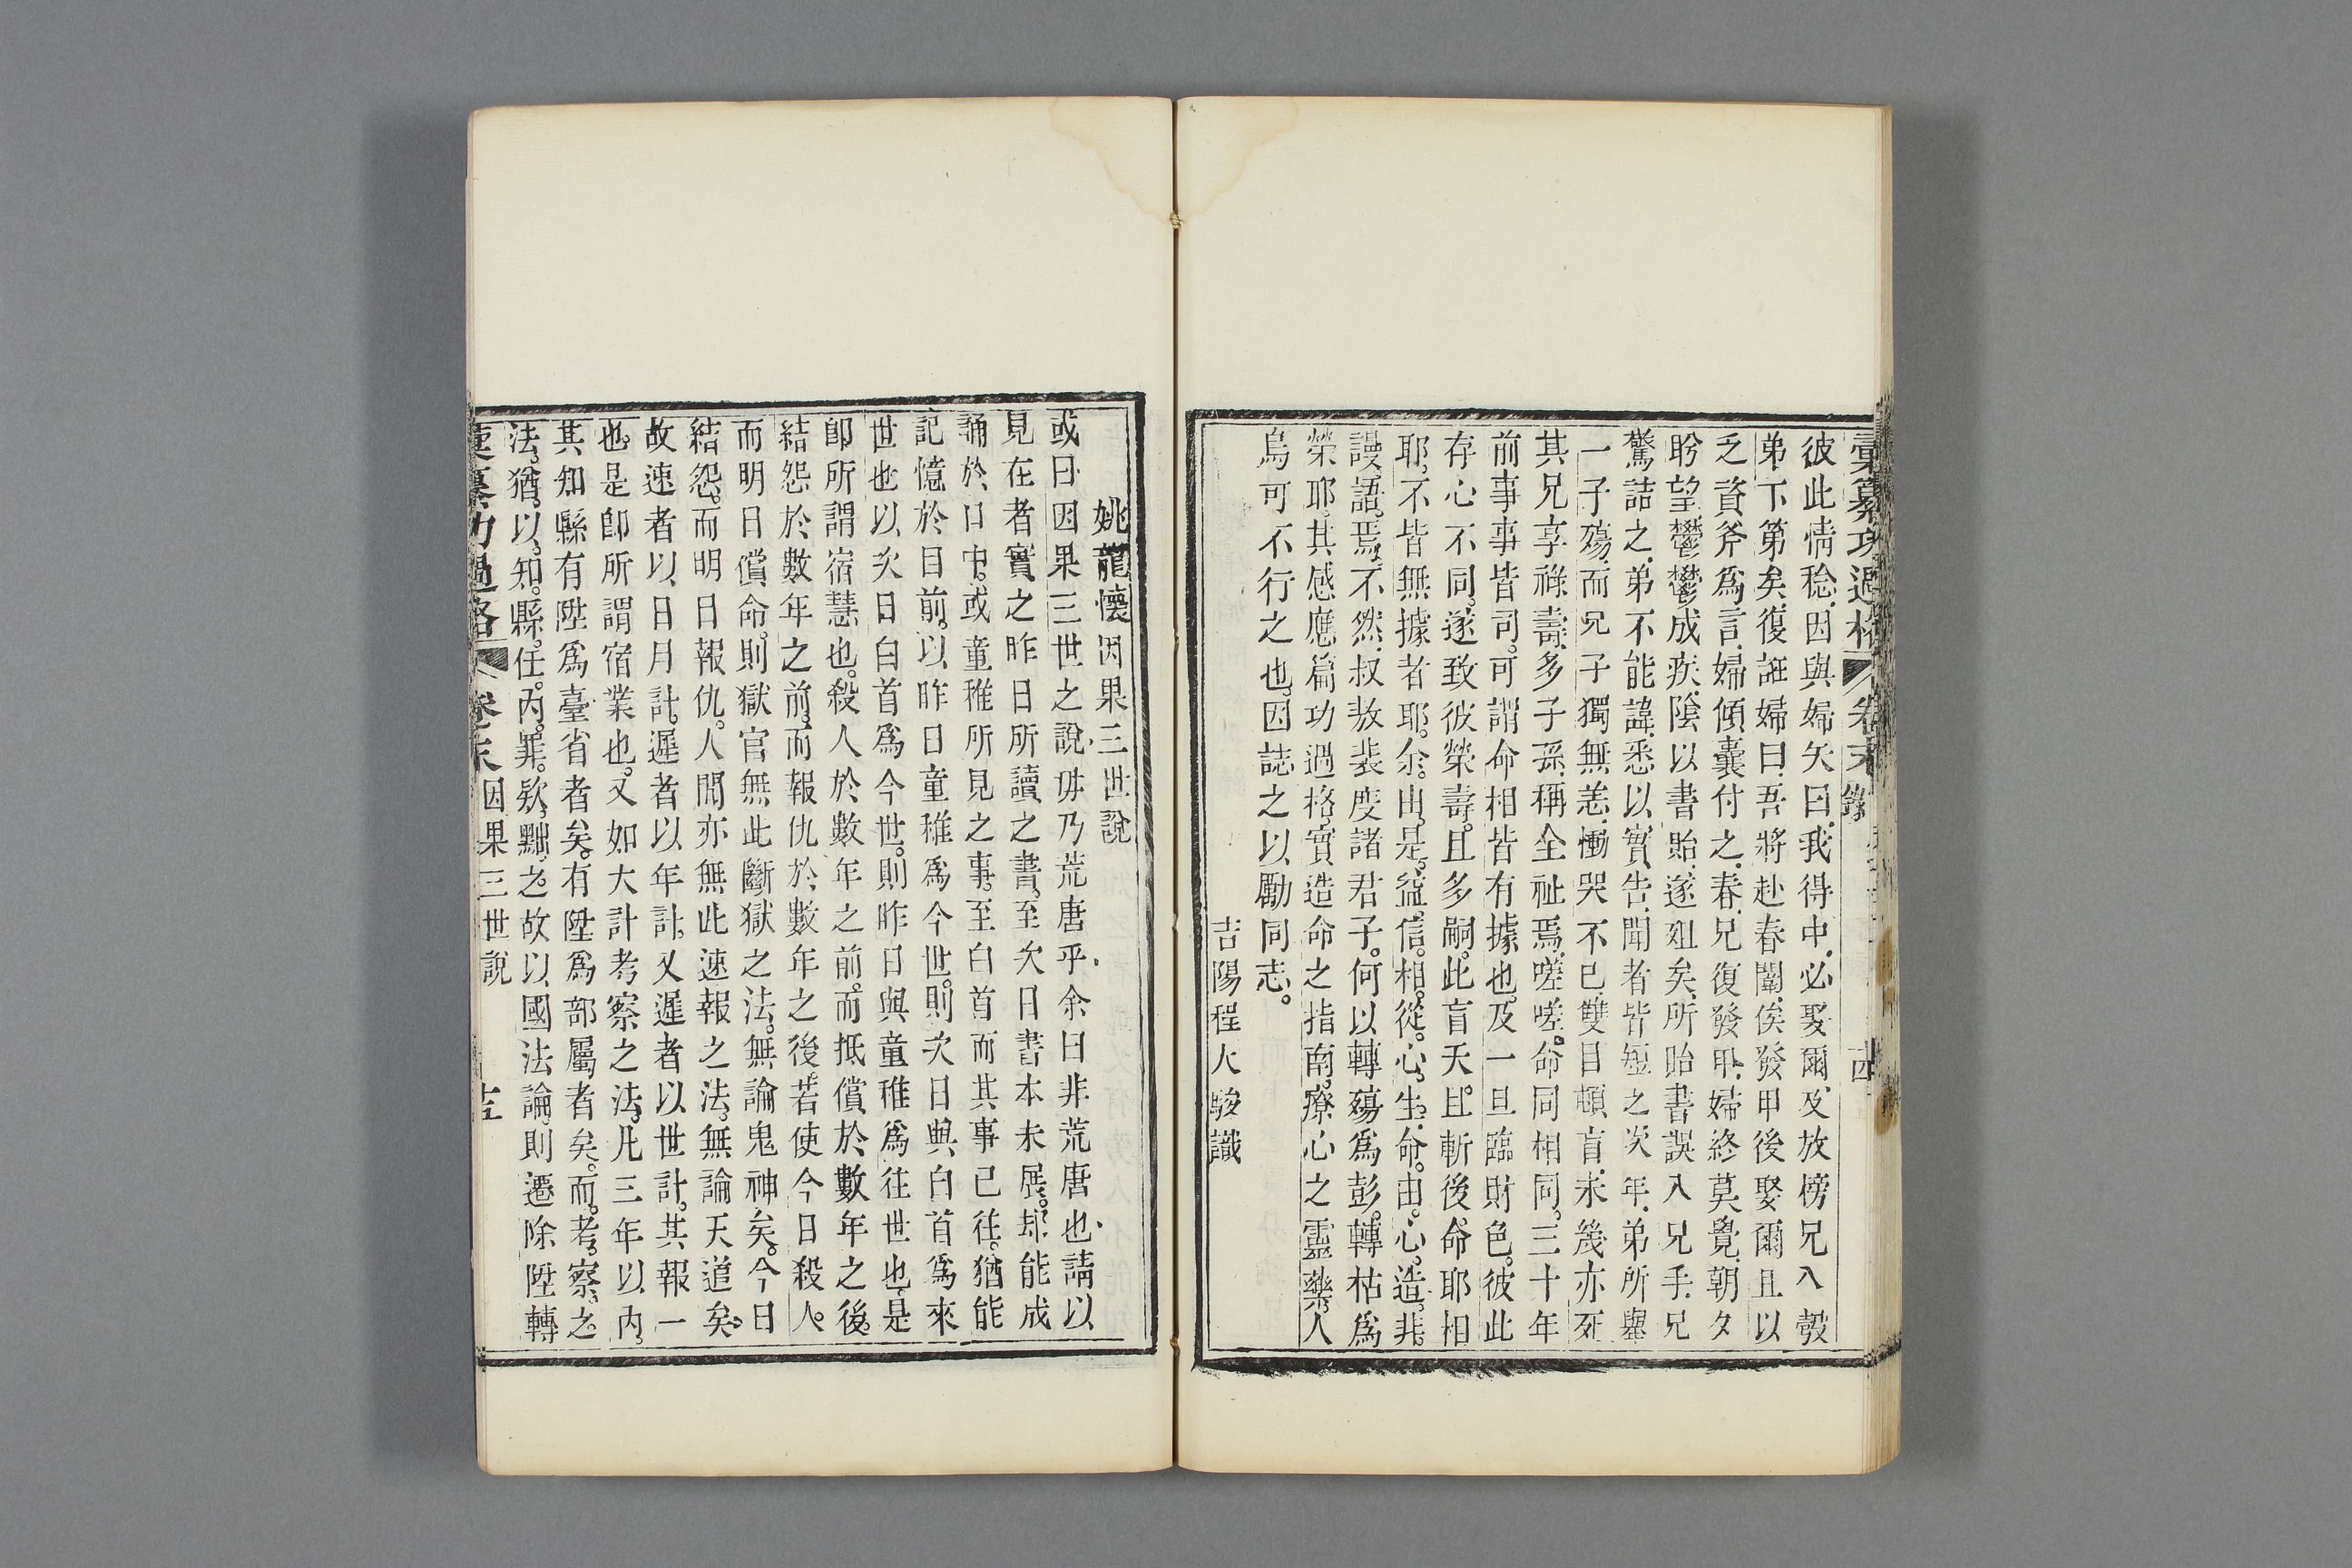 彙纂功過格 卷末 十四
彼此情稔因與婦矢曰我得中必娶爾及放榜兄入彀
弟下第矣復誑婦曰吾將赴春闈俟發甲後娶爾且以
乏資斧爲言婦傾囊付之春兄復發甲婦終莫覺朝夕
盻望鬱鬱成疾陰以書貽遂殂矣所貽書誤入兄手兄
驚詰之弟不能諱悉以實告聞者皆短之次年弟所舉
一子殤而兄子獨無恙慟哭不已雙目頓盲未幾亦死
其兄享祿壽多子孫稱全祉焉嗟嗟命同相同三十年
前事事皆司可謂命相皆有據也及一旦臨財色彼此
存心不同遂致彼榮壽且多嗣此盲夭且斬後命耶相
耶不皆無據者耶余由是益信相從心生命由心造非
謾語焉不然叔敖裴度諸君子何以轉殤爲彭轉枯爲
榮耶其感應篇功過格實造命之指南療心之靈藥人
烏可不行之也因誌之以勵同志
吉陽程大駿識
姚龍懷因果三世說
或曰因果三世之說毋乃荒唐乎余曰非荒唐也請以
見在者實之昨日所讀之書至次日書本未展却能成
誦於口中或童稚所見之事至白首而其事已往猶能
記憶於目前以昨日童稚爲今世則次日與白首爲來
世也以次日白首爲今世則昨日與童稚爲往世也是
即所謂宿慧也殺人於數年之前而抵償於數年之後
結怨於數年之前而報仇於數年之後若使今日殺人
而明日償命則獄官無此斷獄之法無論鬼神矣今日
結怨而明日報仇人間亦無此速報之法無論天道矣
故速者以日月計遲者以年計又遲者以世計其報一
也是即所謂宿業也又如大計考察之法凡三年以內
其知縣有陞爲臺省者矣有陞爲部屬者矣而考察之
法猶以知縣任內罪欵黜之故以國法論則遷除陞轉
彙纂功過格 卷末 因果三世說 十五